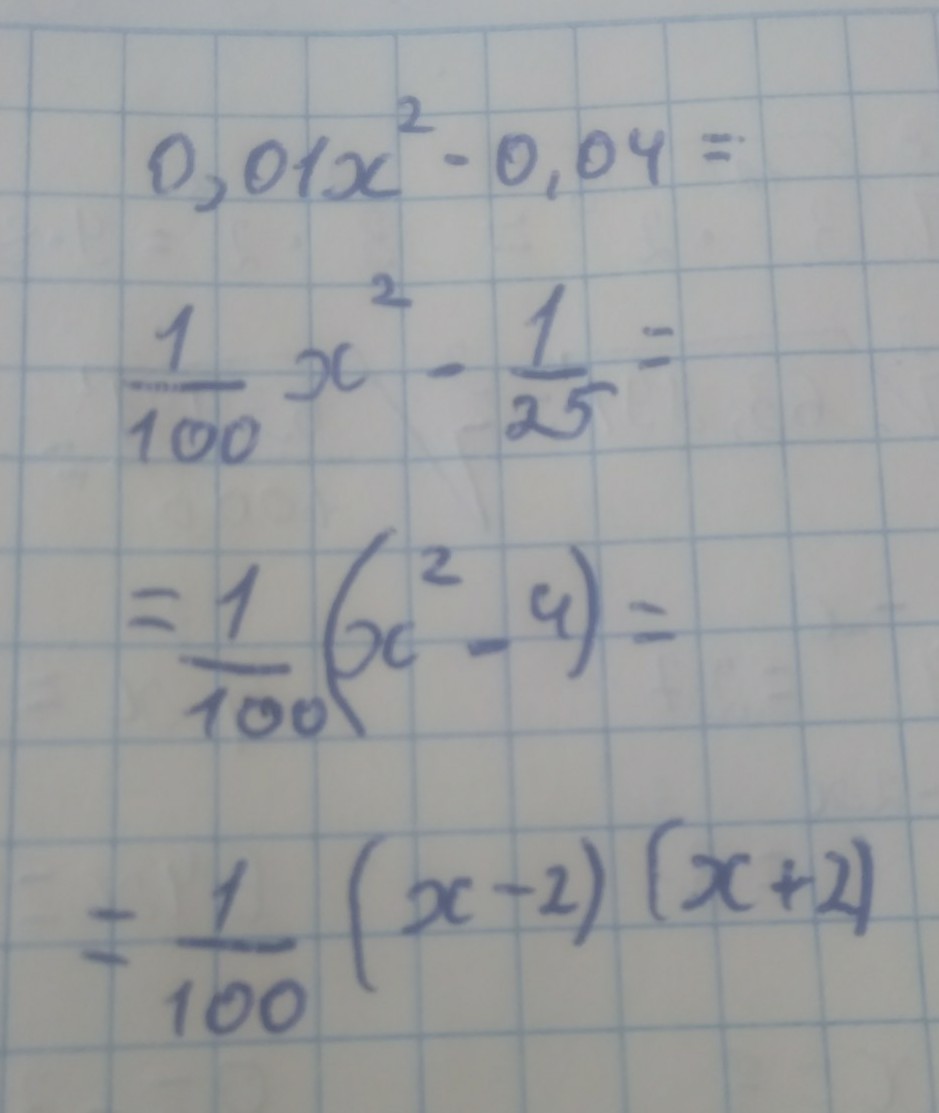 0,01x² - 0,04 =
1/100 x² - 1/25 =
= 1/100 (x² - 4) =
= 1/100 (x - 2) (x + 2)